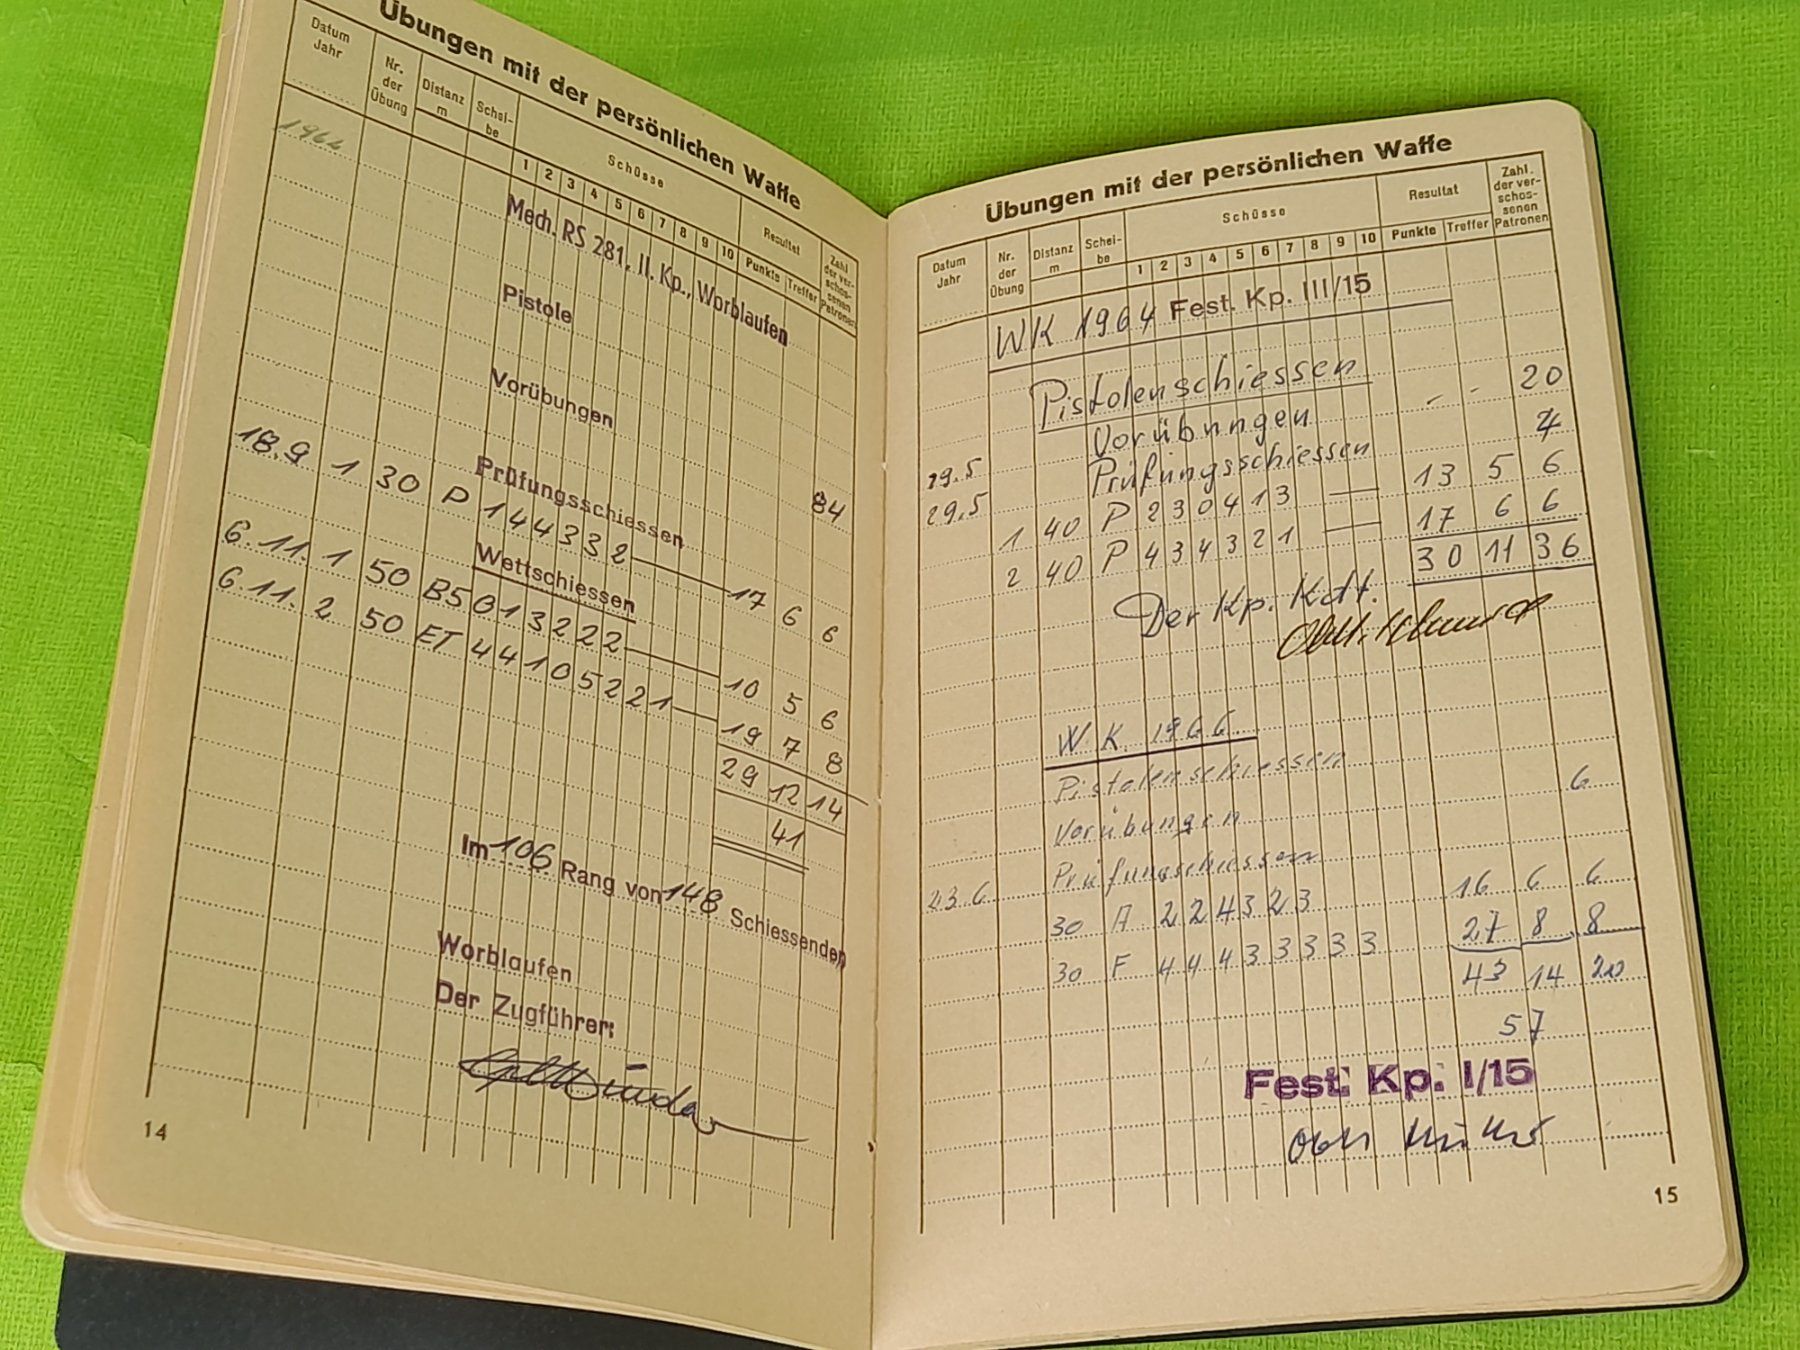 Übungen mit der persönlichen Waffe
Datum Jahr
Nr. der Übung
Distanz m
Schei-be
Schüsse
1 2 3 4 5 6 7 8 9 10
Resultat
Punkte Treffer
Zahl der ver-schos-senen Patronen
1964
Mech. RS 281, II. Kp., Worblaufen
Pistole
Vorübungen
84
Prüfungsschiessen
18.9 1 30 P 1 4 4 3 3 2 17 6 6
Wettschiessen
6.11. 1 50 B5 0 1 3 2 2 2 10 5 6
6.11. 2 50 ET 4 4 1 0 5 2 2 1 19 7 8
29 12 14
41
Im 106 Rang von 148 Schiessenden
Worblaufen
Der Zugführer:
14
Übungen mit der persönlichen Waffe
Datum Jahr
Nr. der Übung
Distanz m
Schei-be
Schüsse
1 2 3 4 5 6 7 8 9 10
Resultat
Punkte Treffer
Zahl. der ver-schos-senen Patronen
WK 1964 Fest. Kp. III/15
Pistolenschiessen
29.5 Vorübungen - - 20
29.5 Prüfungsschiessen 4
1 40 P 2 3 0 4 1 3 13 5 6
2 40 P 4 3 4 3 2 1 17 6 6
30 11 36
Der Kp. Kdt.
WK 1966
Pistolenschiessen
Vorübungen 6
23.6 Prüfungschiessen
30 A 2 2 4 3 2 3 16 6 6
30 F 4 4 4 3 3 3 3 3 27 8 8
43 14 20
57
Fest. Kp. I/15
15